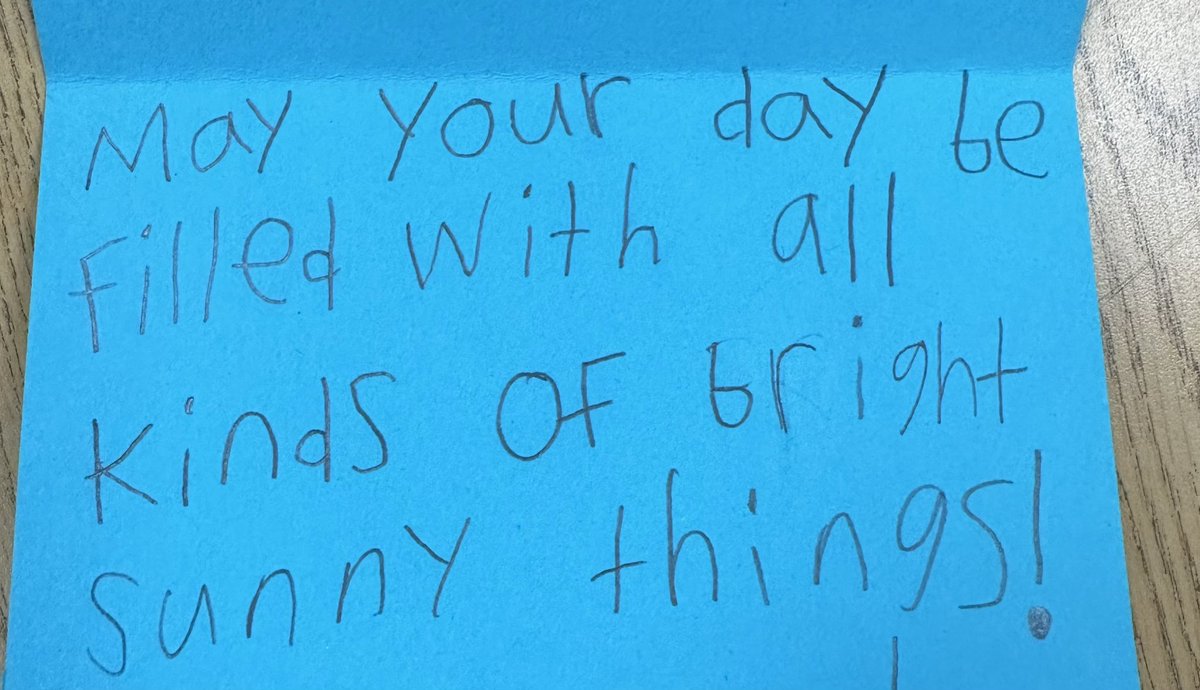 May your day be
filled with all
kinds of bright
sunny things!